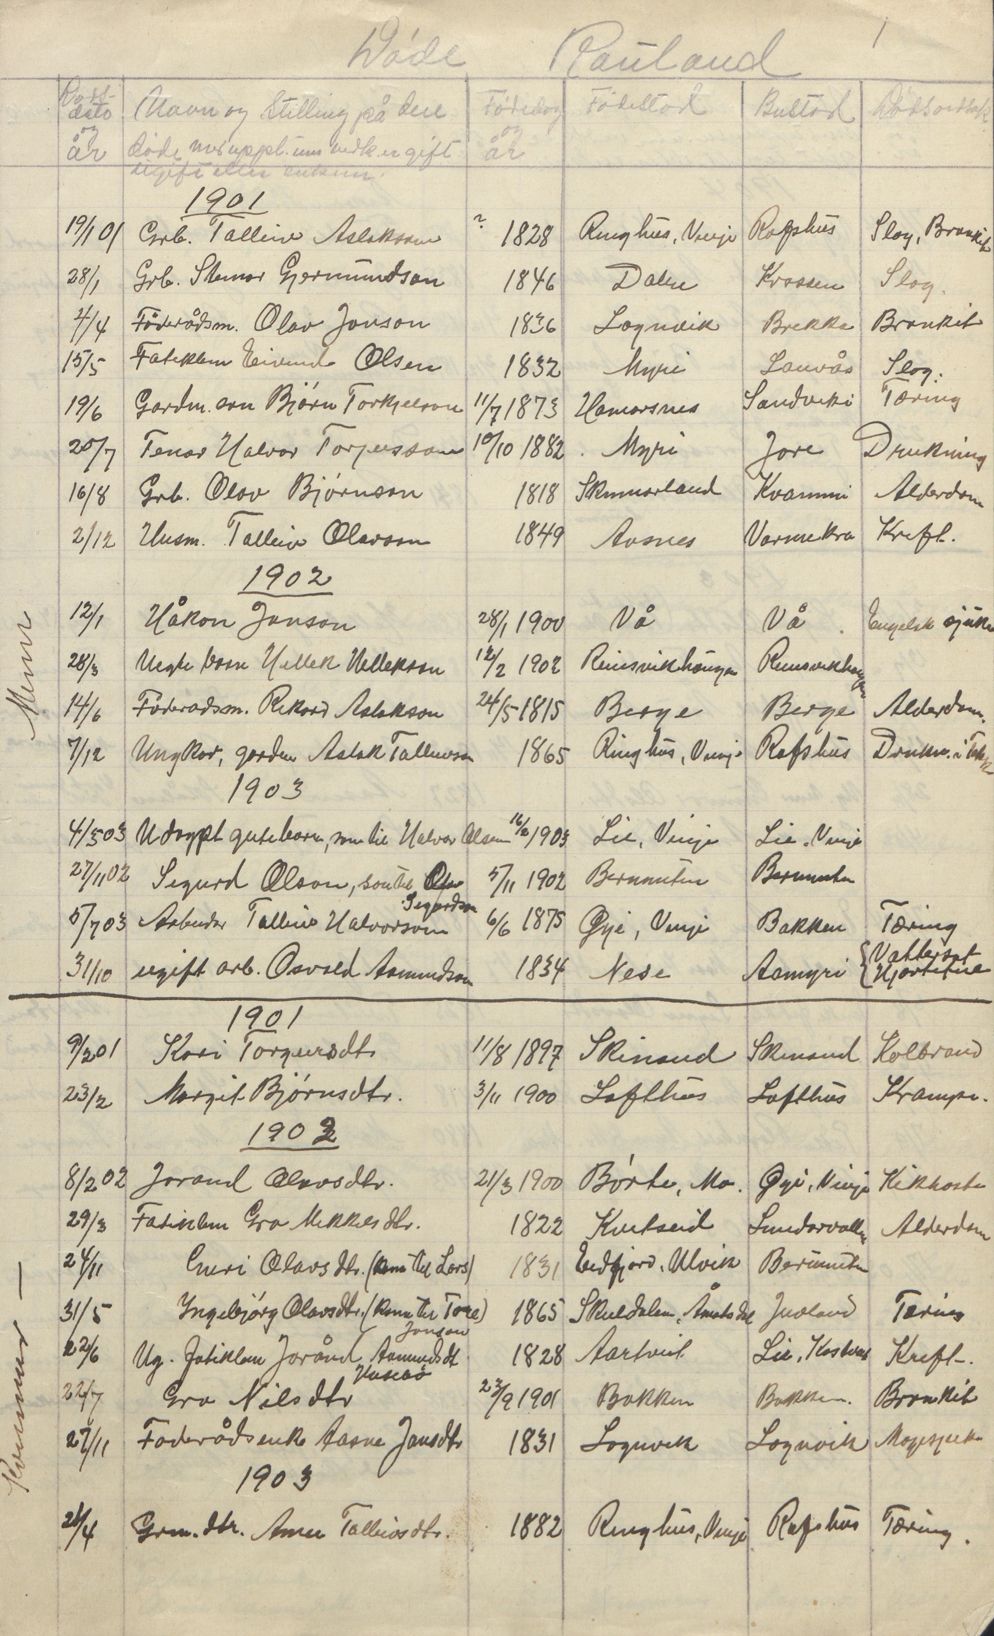 Døde Rauland 1
Døds-dato og år Navn og Stilling på den døde med uppl. um vedk. er gift ugift eller enkem. Fødedag og år Fødestad Bustad Dødsorsak
1901
19/1 01 Grb. Talleiv Aslakson ? 1828 Ringhus, Vinje Rafshus Slag, Bronkit
28/1 Grb. Steinar Gjermundson 1846 Dalen Krossen Slag.
4/4 Föderådsm. Olav Jonson 1836 Lognvik Brekke Bronkit
15/5 Fatiklem Eivind Olsen 1832 Myri Lauvås Slag.
19/6 Gardm. son Bjørn Torkjelson 11/7 1873 Hamarsnes Sandviki Tæring
20/7 Tenar Halvor Torjusson 10/10 1882. Myri Jore Drukning
16/8 Grb. Olav Bjørnson 1818 Skinnarland Kvammi Alderdom
2/12 Husm. Talleiv Olavson 1849 Aasnes Varmekra Kreft.
1902
Menn
12/1 Håkon Jonson 28/1 1900 Vå Vå. Engelsk sjuke
28/3 Uegte born Hellek Hellekson 12/2 1902 Reinsvikhaugen Reinsvikhaugen
14/6 Föderadsm. Rikard Aslakson 24/5 1815 Berge Berge Alderdom.
7/12 Ungkar, garden Aslak Talleivson 1865 Ringhus, Vinje Rafshus Drukn. i
1903
4/3 03 Udøypt gutebarn, son til Halvor Olsen 16/2 1903 Lie, Vinje Lie, Vinje
27/11 02 Sigurd Olson, son til Olav Sigurdson 5/11 1902 Bermuten Bermuten
5/7 03 Arbeider Talleiv Halvorson 6/6 1875 Øyi, Vinje Bakken Tæring
31/10 ugift arb. Osvald Aamundson 1834 Nese Aamyri {Vattersot Hjartefeil
1901
9/2 01 Kari Torgersdtr 11/8 1897 Skinand Skinand Kolbrand
23/2 Margit Bjørnsdtr. 3/11 1900 Lofthus Lofthus Krampe.
1902
Kvinnur —
8/2 02 Jorand Olavsdtr. 21/3 1900 Børte, Mo. Øyi, Vinje Kikhoste
29/3 Fatiklem Gro Mikkelsdtr. 1822 Kvitseid Sundarvollen Alderdom
24/11 Guri Olavsdtr. (kona til Lars) 1831 Eidfjord, Ulvik Bermuten
31/5 Ingebjørg Olavsdtr. (kona til Tore Jonson) 1865 Skuldalen, Åmotsdal Judland Tæring
22/6 Ug. fatiklem Jorånd Aamundsdt Huseio 1828 Aartveit Lie, Kreft.
22/7 Gro Nilsdtr 23/9 1901 Bakken Bakken. Bronkit
27/11 Foderådsenke Aasne Jonsdtr 1831 Lognvik Lognvik Magesjuke
1903
26/4 Grm. dtr. Anne Talleivsdtr. 1882 Ringhus, Vinje Rafshus Tæring.